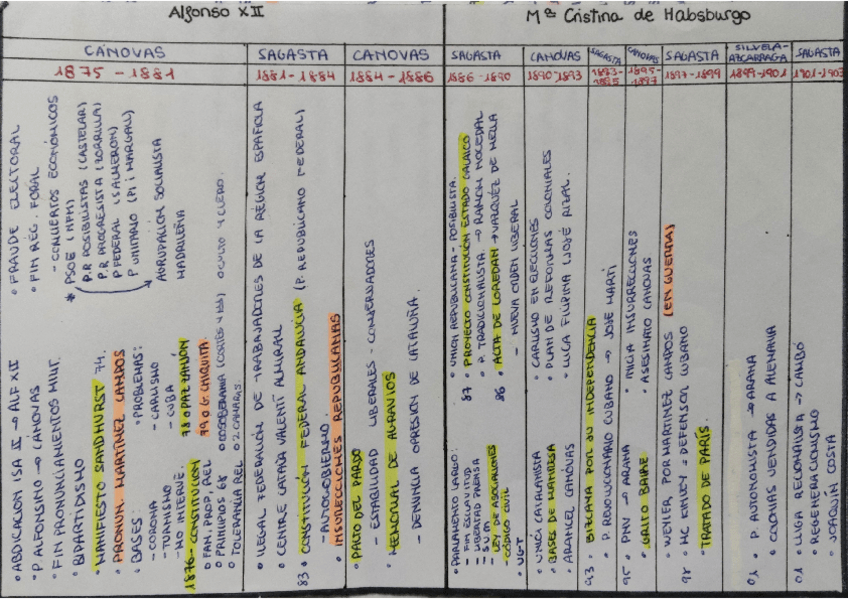 Alfonso XII
Mª Cristina de Habsburgo
CÁNOVAS
SAGASTA
CANOVAS
SAGASTA
CANOVAS
SAGASTA
CANOVAS
SAGASTA
SILVELA-
AZCARRAGA
SAGASTA
1875 - 1881
1881-1884
1884-1886
1886-1890
1890-1893
1893-
1895
1895-
1897
1897-1899
1899-1901
1901-1902
• ABDICACION ISA II → ALF XII
• P ALFONSINO → CÁNOVAS
• FIN PRONUNCIAMIENTOS MILIT.
• BIPARTIDISMO
• MANIFIESTO SANDHURST 74.
• PRONUN. MARTINEZ CAMPOS
• BASES:
- CORONA
- TURNISMO
- NO INTERVÉ.
• PROBLEMAS:
- CARLISMO
- CUBA
78 PAZ ZANJÓN
79 G. CHIQUITA
1876- CONSTITUCIÓN
◦ FAM, PROP, REL
◦ COSOBERANIA (CORTES Y
◦ TOLERANCIA REL
◦ 2 CÁMARAS
OCULTO Y CLERO
• FRAUDE ELECTORAL
• FIN REG. FORAL
- CONCIERTOS ECONÓMICOS
* PSOE
P.R POSIBILISTAS (CASTELAR)
P.R PROGRESISTA (ZORRILLA)
P FEDERAL (SALMERON)
P UNITARIO (PI i MARGALL)
AGRUPACION SOCIALISTA
MADRILEÑA
• ILEGAL FEDERACIÓN DE TRABAJADORES DE LA REGIÓN ESPAÑOLA
• CENTRE CATALÀ VALENTÍ ALMIRALL
83 ◦ CONSTITUCIÓN FEDERAL ANDALUCÍA (P. REPUBLICANO FEDERAL)
- AUTOGOBIERNO
• INSURRECCIONES REPUBLICANAS
• PACTO DEL PARDO
- ESTABILIDAD LIBERALES - CONSERVADORES
• MEMORIAL DE AGRAVIOS
- DENUNCIA OPRESION DE CATALUÑA.
• PARLAMENTO LARGO:
- FIN ESCLAVITUD
- LIBERTAD PRENSA
- S.U.M.
- LEY DE ASOCIACIONES
- CÓDIGO CIVIL
• UGT
• UNION REPUBLICANA - POSIBILISTA.
87 PROYECTO CONSTITUCIÓN ESTADO GALAICO
• P. TRADICIONALISTA → RAMÓN NOCEDAL
86 • ACTA DE LOREDAN → VÁZQUEZ DE MELLA
- NUEVA ORDEN LIBERAL
• UNIÓ CATALANISTA
• BASES DE MANRESA
• ARANCEL CANOVAS
• CARLISMO EN ELECCIONES
• PLAN DE REFORMAS COLONIALES
• LIGA FILIPINA (JOSÉ RIZAL.
93 • BIZCAYA POR SU INDEPENDENCIA
• P. REVOLUCIONARIO CUBANO → JOSE MARTÍ
95 • PNV → ARANA
• GRITO BAIRE
• INICIA INSURRECCIONES
• ASESINATO CANOVAS
• WEYLER POR MARTINEZ CAMPOS (EN GUERRA)
• MC KINLEY = DEFENSOR CUBANO
98 • TRATADO DE PARÍS.
01 • P. AUTONOMISTA → ARANA
• COLONIAS VENDIDAS A ALEMANIA
01 • LLIGA REGIONALISTA → CAMBÓ
• REGENERACIONISMO
• JOAQUIN COSTA